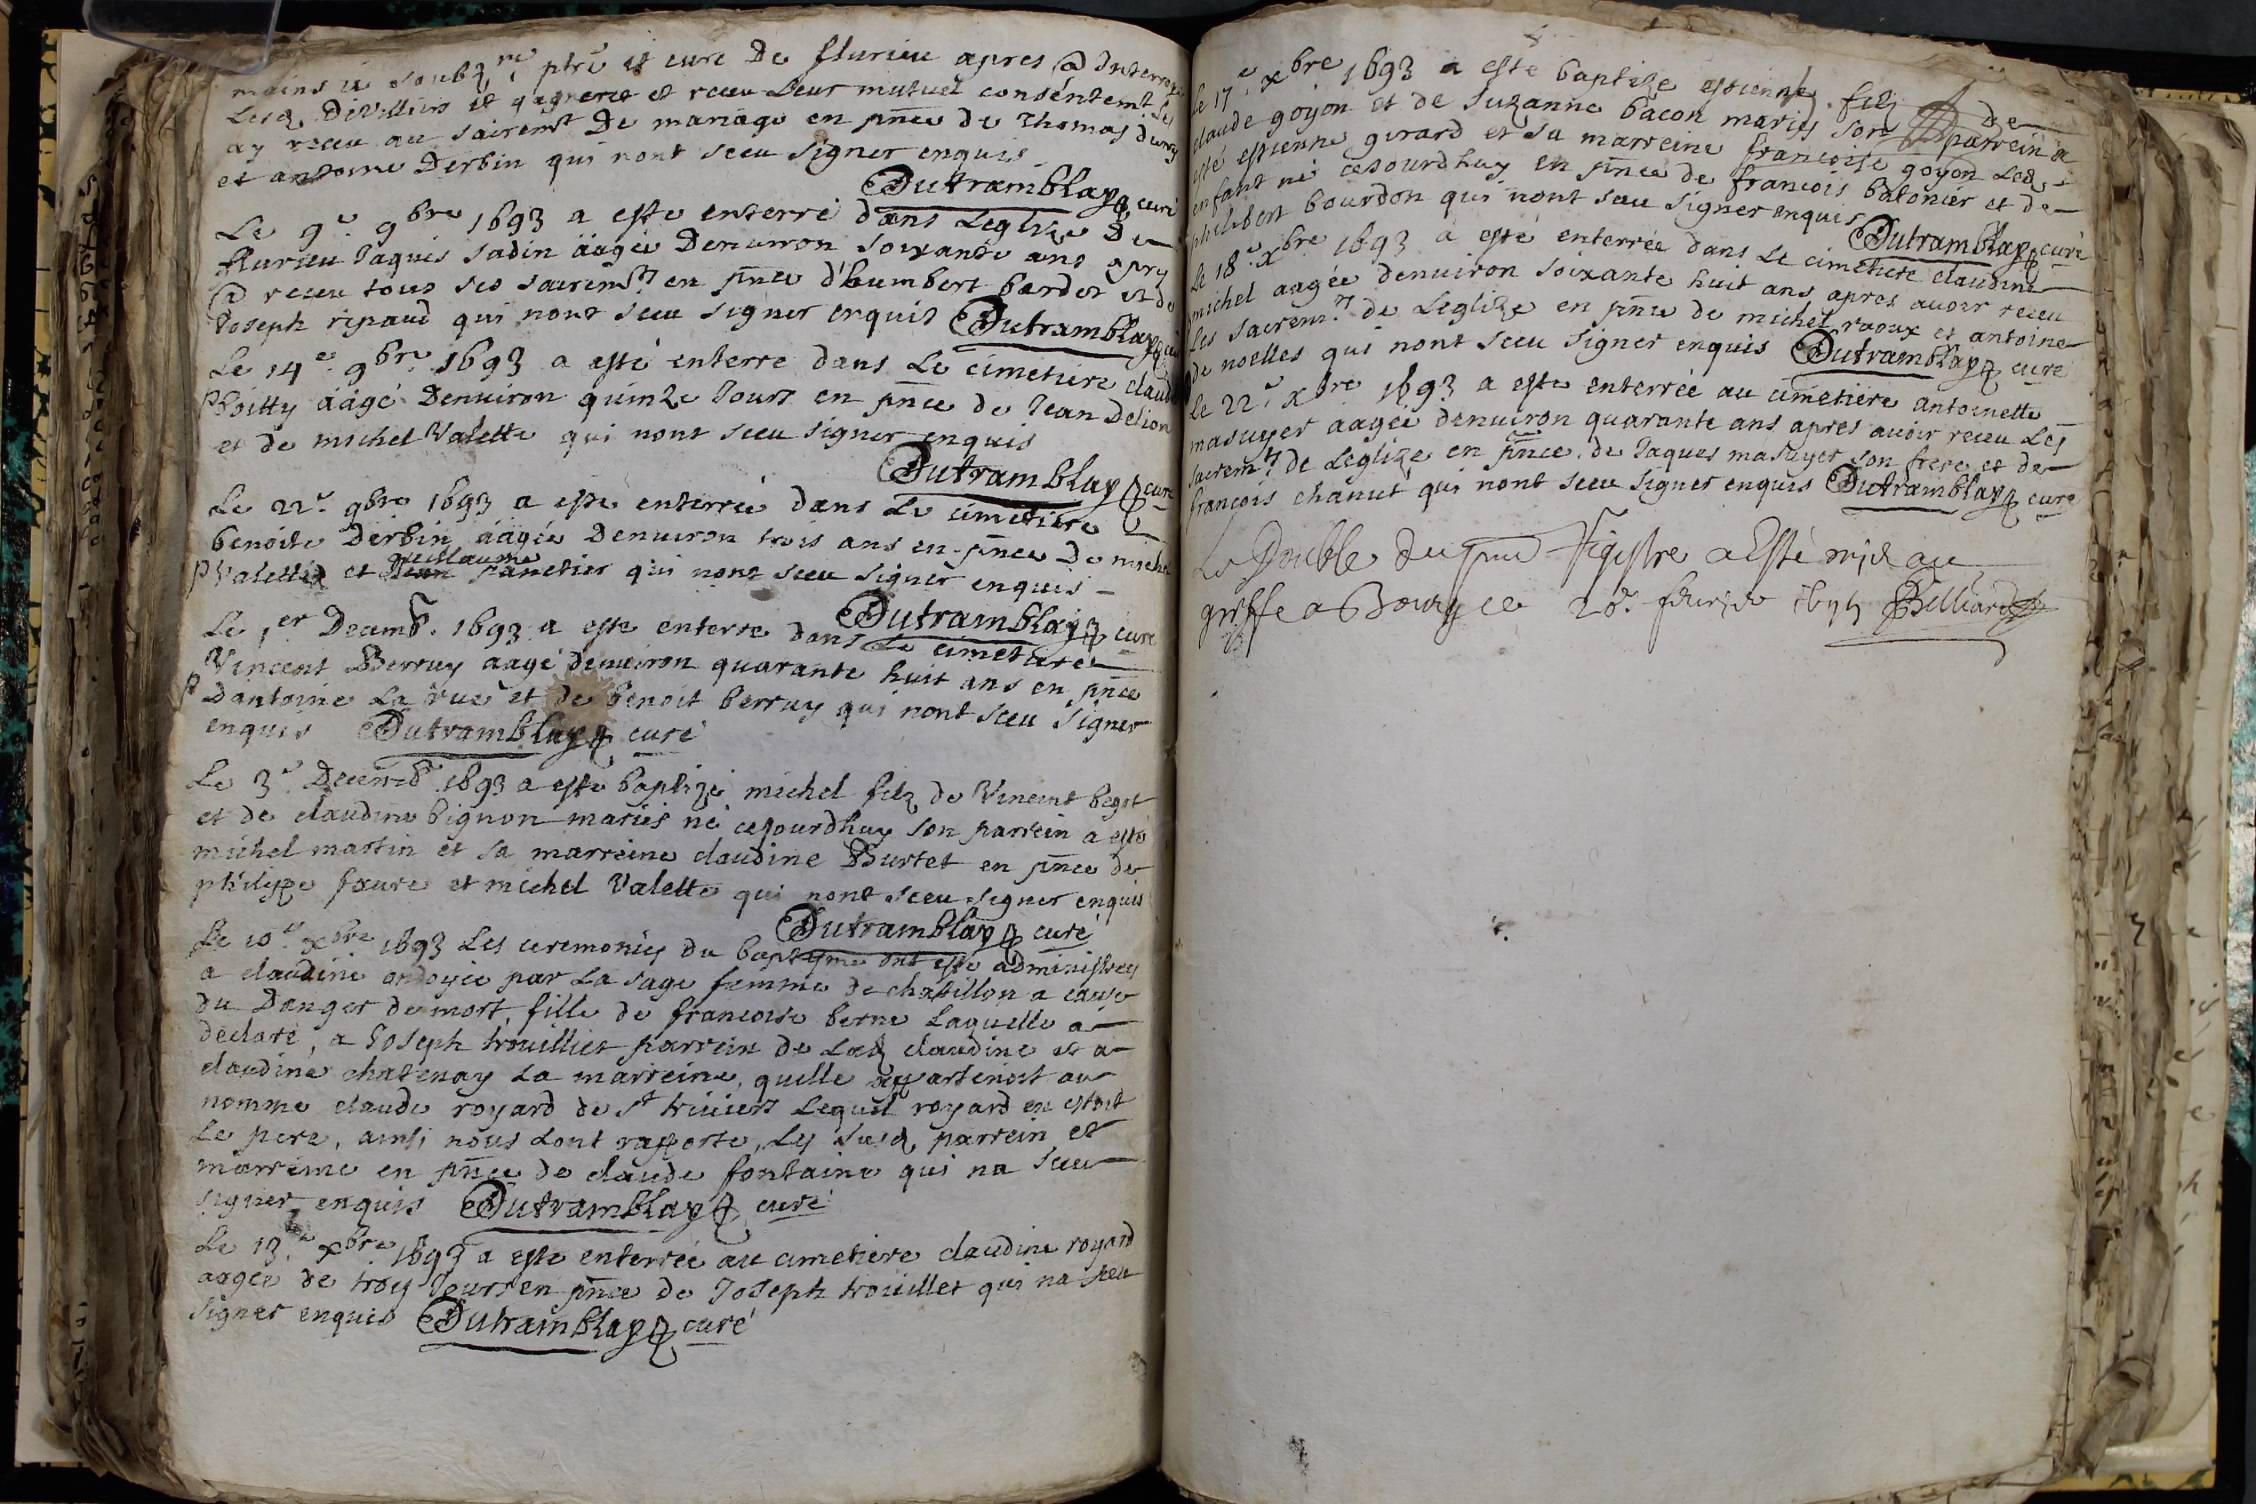 moins ie soubz.né ptre et curé De flurieu apres @ Interrogé
Lesd. Devilliers et et receu Leur mutuel consentemt Les
ay receu au sairemt De mariage en pñce de Thomas
et antoine Derbin qui nont sceu signer enquis
Dutramblay curé
Le 9e 9bre 1693 a este enterré dans Leglize De
flurieu Jaques sadin äagée Denuiron soixante ans apry
@ receu tous ses sairemts en pñce d'humbert bardet et de
Joseph ripaud qui nont sceu signer enquis Dutramblay curé
Le 14e 9bre 1693 a esté enterre dans Le cimetiere claude
äagé Denuiron quinze Jours en pñce de Jean Delion
et de michel Valette qui nont sceu signer enquis
Dutramblay curé
Le 22e 9bre 1693 a este enterrée dans Le cimetiere
benoite Derbin äagée Denuiron trois ans en pñce De michel
Valette et Guillaume panetier qui nont sceu signer enquis
Dutramblay curé
Le 1er Decemb. 1693 a este enterre dans Le cimetiere
Vincent Berruy aagé denuiron quarante huit ans en pñce
Dantoine La rue et de benoit berruy qui nont sceu signer
enquis Dutramblay curé
Le 3e Decemb. 1693 a este baptizé michel filz de Vincent begot
et de claudine bignon mariés né cejourdhuy son parrein a esté
michel martin et sa marreine claudine Burtet en pñce de
philype faure et michel Valette qui nont sceu signer enquis
Dutramblay curé
Le 10e xbre 1693 Les ceremonies du baptyme ont este administrey
a claudine ondoyée par La sage femme de chatillon a cause
du Danger de mort, fille de francoise berne Laquelle a
declaré, a Joseph trouilliet parrein de Lad claudine et a
claudine chatenay La marreine, quelle appartenoit au
nomme claude royard de st triviers Lequel royard en estoit
Le pere, ainsi nous Lont raporte, Ly susd. parrein et
marreine en pñce de claude fontaine qui na sceu
signer enquis Dutramblay curé
Le 13e xbre 1693 a este enterrée au cimetiere claudine royard
aagée de troy Jours en pñce de Joseph trouillet qui na sceu
signer enquis Dutramblay curé
Le 17e xbre 1693 a este baptize estienne filz de
claude goyon et de Suzanne bacon mariés son parrein a
esté estienne girard et sa marreine francoise goyon Led.
enfant né cejourdhuy en pñce de francois balonier et de
philibert bourdon qui nont sceu signer enquis Dutramblay curé
Le 18e xbre 1693 a esté enterrée dans Le cimetiere claudine
michel aagée denuiron soixante huit ans apres auoir receu
Les sacremts de Leglize en pñce de michel raoux et antoine
de noelles qui nont sceu signer enquis Dutramblay curé
Le 22e xbre 1693 a este enterrée au cimetiere antoinette
masuyer aagée denuiron quarante ans apres auoir receu Les
sacremts de Leglize en pñce de Jaques masuyer son frere et de
francois chanut qui nont sceu signer enquis Dutramblay curé
Le Double du pnt Registre a Esté mis au
greffe a Bourg ce 20e feurier Billiard